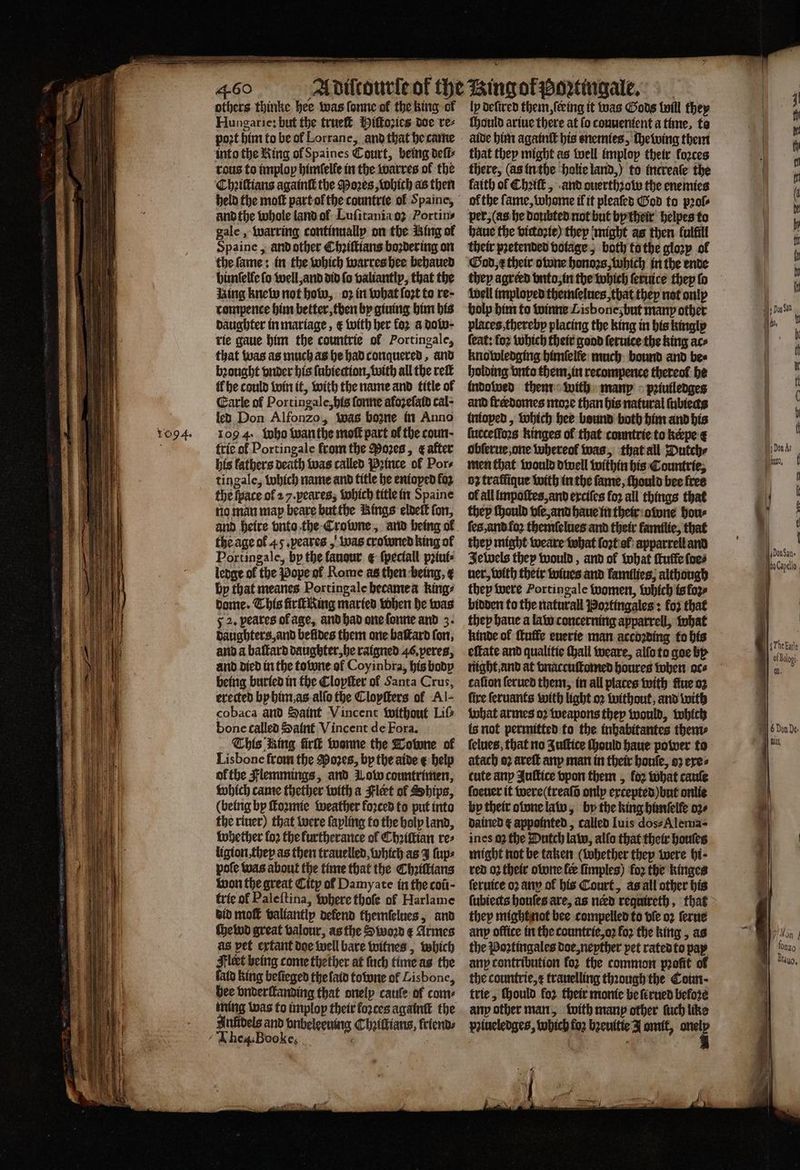 460 A discourse of the King of Portingale.
others thinke hee was sonne of the king of
Hungarie: but the truest Histories doe re-
port him to be of Lorrane, and that he came
into the King of Spaines Court, being desi-
rous to imploy himselfe in the warres of the
Christians against the Mores, which as then
held the most part of the countrie of Spaine,
and the whole land of Lusitania or Portin-
gale, warring continually on the King of
Spaine, and other Christians bordering on
the same: in the which warres hee behaued
himselfe so well, and did so valiantly, that the
King knew not how, or in what sort to re-
compence him better, then by giuing him his
daughter in mariage, & with her for a dow-
rie gaue him the countrie of Portingale,
that was as much as he had conquered, and
brought vnder his subiection, with all the rest
if he could win it, with the name and title of
Earle of Portingale, his sonne aforesaid cal-
led Don Alfonzo, was borne in Anno
1094. who wan the most part of the coun-
trie of Portingale from the Mores, & after
his fathers death was called Prince of Por-
tingale, which name and title he enioyed for
the space of 27. yeares, which title in Spaine
no man may beare but the Kings eldest son,
and heire vnto the Crowne, and being of
the age of 45. yeares, was crowned king of
Portingale, by the fauour & speciall priui-
ledge of the Pope of Rome as then being, &
by that meanes Portingale became a king-
dome. This first King maried when he was
52. yeares of age, and had one sonne and 3.
daughters, and besides them one bastard son,
and a bastard daughter, he raigned 46. yeres,
and died in the towne of Coyinbra, his body
being buried in the Cloyster of Santa Crus,
erected by him, as also the Cloysters of Al-
cobaca and Saint Vincent without Lis-
bone called Saint Vincent de Fora.
This King first wonne the Towne of
Lisbone from the Mores, by the aide & help
of the Flemmings, and Low countrimen,
which came thether with a Fleet of Ships,
(being by stormie weather forced to put into
the riuer) that were sayling to the holy land,
whether for the furtherance of Christian re-
ligion, they as then trauelled, which as I sup-
pose was about the time that the Christians
won the great City of Damyate in the coũ-
trie of Palestina, where those of Harlame
did most valiantly defend themselues, and
shewd great valour, as the Sword & Armes
as yet extant doe well bare witnes, which
Fleet being come thether at such time as the
said king besieged the said towne of Lisbone,
hee vnderstanding that onely cause of com-
ming was to imploy their forces against the
Infidels and vnbeleeuing Christians, friend-
The 4. Booke,
1094.
ly desired them, seeing it was Gods will they
should ariue there at so conuenient a time, to
aide him against his enemies, shewing them
that they might as well imploy their forces
there, (as in the holie land,) to increase the
faith of Christ, and ouerthrow the enemies
of the same, whome if it pleased God to pros-
per, (as he doubted not but by their helpes to
haue the victorie) they might as then fulfill
their pretended voiage, both to the glory of
God, & their owne honors, which in the ende
they agreed vnto, in the which seruice they so
well imployed themselues, that they not only
holp him to winne Lisbone, but many other
places, thereby placing the king in his kingly
seat: for which their good seruice the king ac-
knowledging himselfe much bound and be-
holding vnto them, in recompence thereof he
indowed them with many priuiledges
and freedomes more than his natural subiects
inioyed, which hee bound both him and his
successors kinges of that countrie to keepe &
obserue, one whereof was, that all Dutch-
men that would dwell within his Countrie,
or traffique with in the same, should bee free
of all impostes, and excises for all things that
they should vse, and haue in their owne hou-
ses, and for themselues and their familie, that
they might weare what sort of apparrell and
Jewels they would, and of what stuffe soe-
uer, with their wiues and families, although
they were Portingale women, which is for-
bidden to the naturall Portingales: for that
they haue a law concerning apparrell, what
kinde of stuffe euerie man according to his
estate and qualitie shall weare, also to goe by
night, and at vnaccustomed houres when oc-
casion serued them, in all places with fiue or
sixe seruants with light or without, and with
what armes or weapons they would, which
is not permitted to the inhabitantes them-
selues, that no Justice should haue power to
atach or arest any man in their house, or exe-
cute any Justice vpon them, for what cause
soeuer it were (treason only excepted) but onlie
by their owne law, by the king himselfe or-
dained & appointed, called Iuis dos-Alema-
ines or the Dutch law, also that their houses
might not be taken (whether they were hi-
red or their owne fee simples) for the kinges
seruice or any of his Court, as all other his
subiects houses are, as need requireth, that
they might not bee compelled to vse or serue
any office in the countrie, or for the king, as
the Portingales doe, neyther yet rated to pay
any contribution for the common profit of
the countrie, & trauelling through the Coun-
trie, should for their monie be serued before
any other man, with many other such like
priueledges, which for breuitie I omit, onely